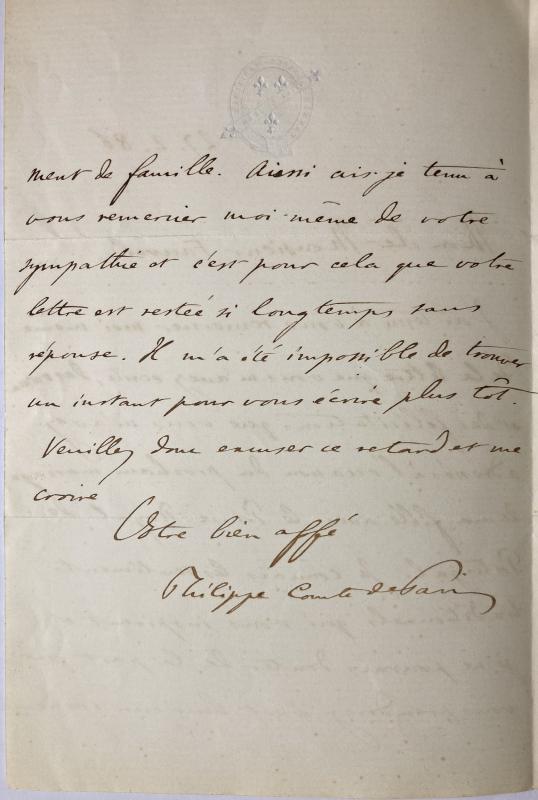 ment de famille. Aussi ais-je tenu à
vous remercier moi-même de votre
sympathie et c'est pour cela que votre
lettre est restée si longtemps sans
réponse. Il m'a été impossible de trouver
un instant pour vous écrire plus tôt.
Veuillez donc excuser ce retard et me
croire
Votre bien affé
Philippe Comte de Paris